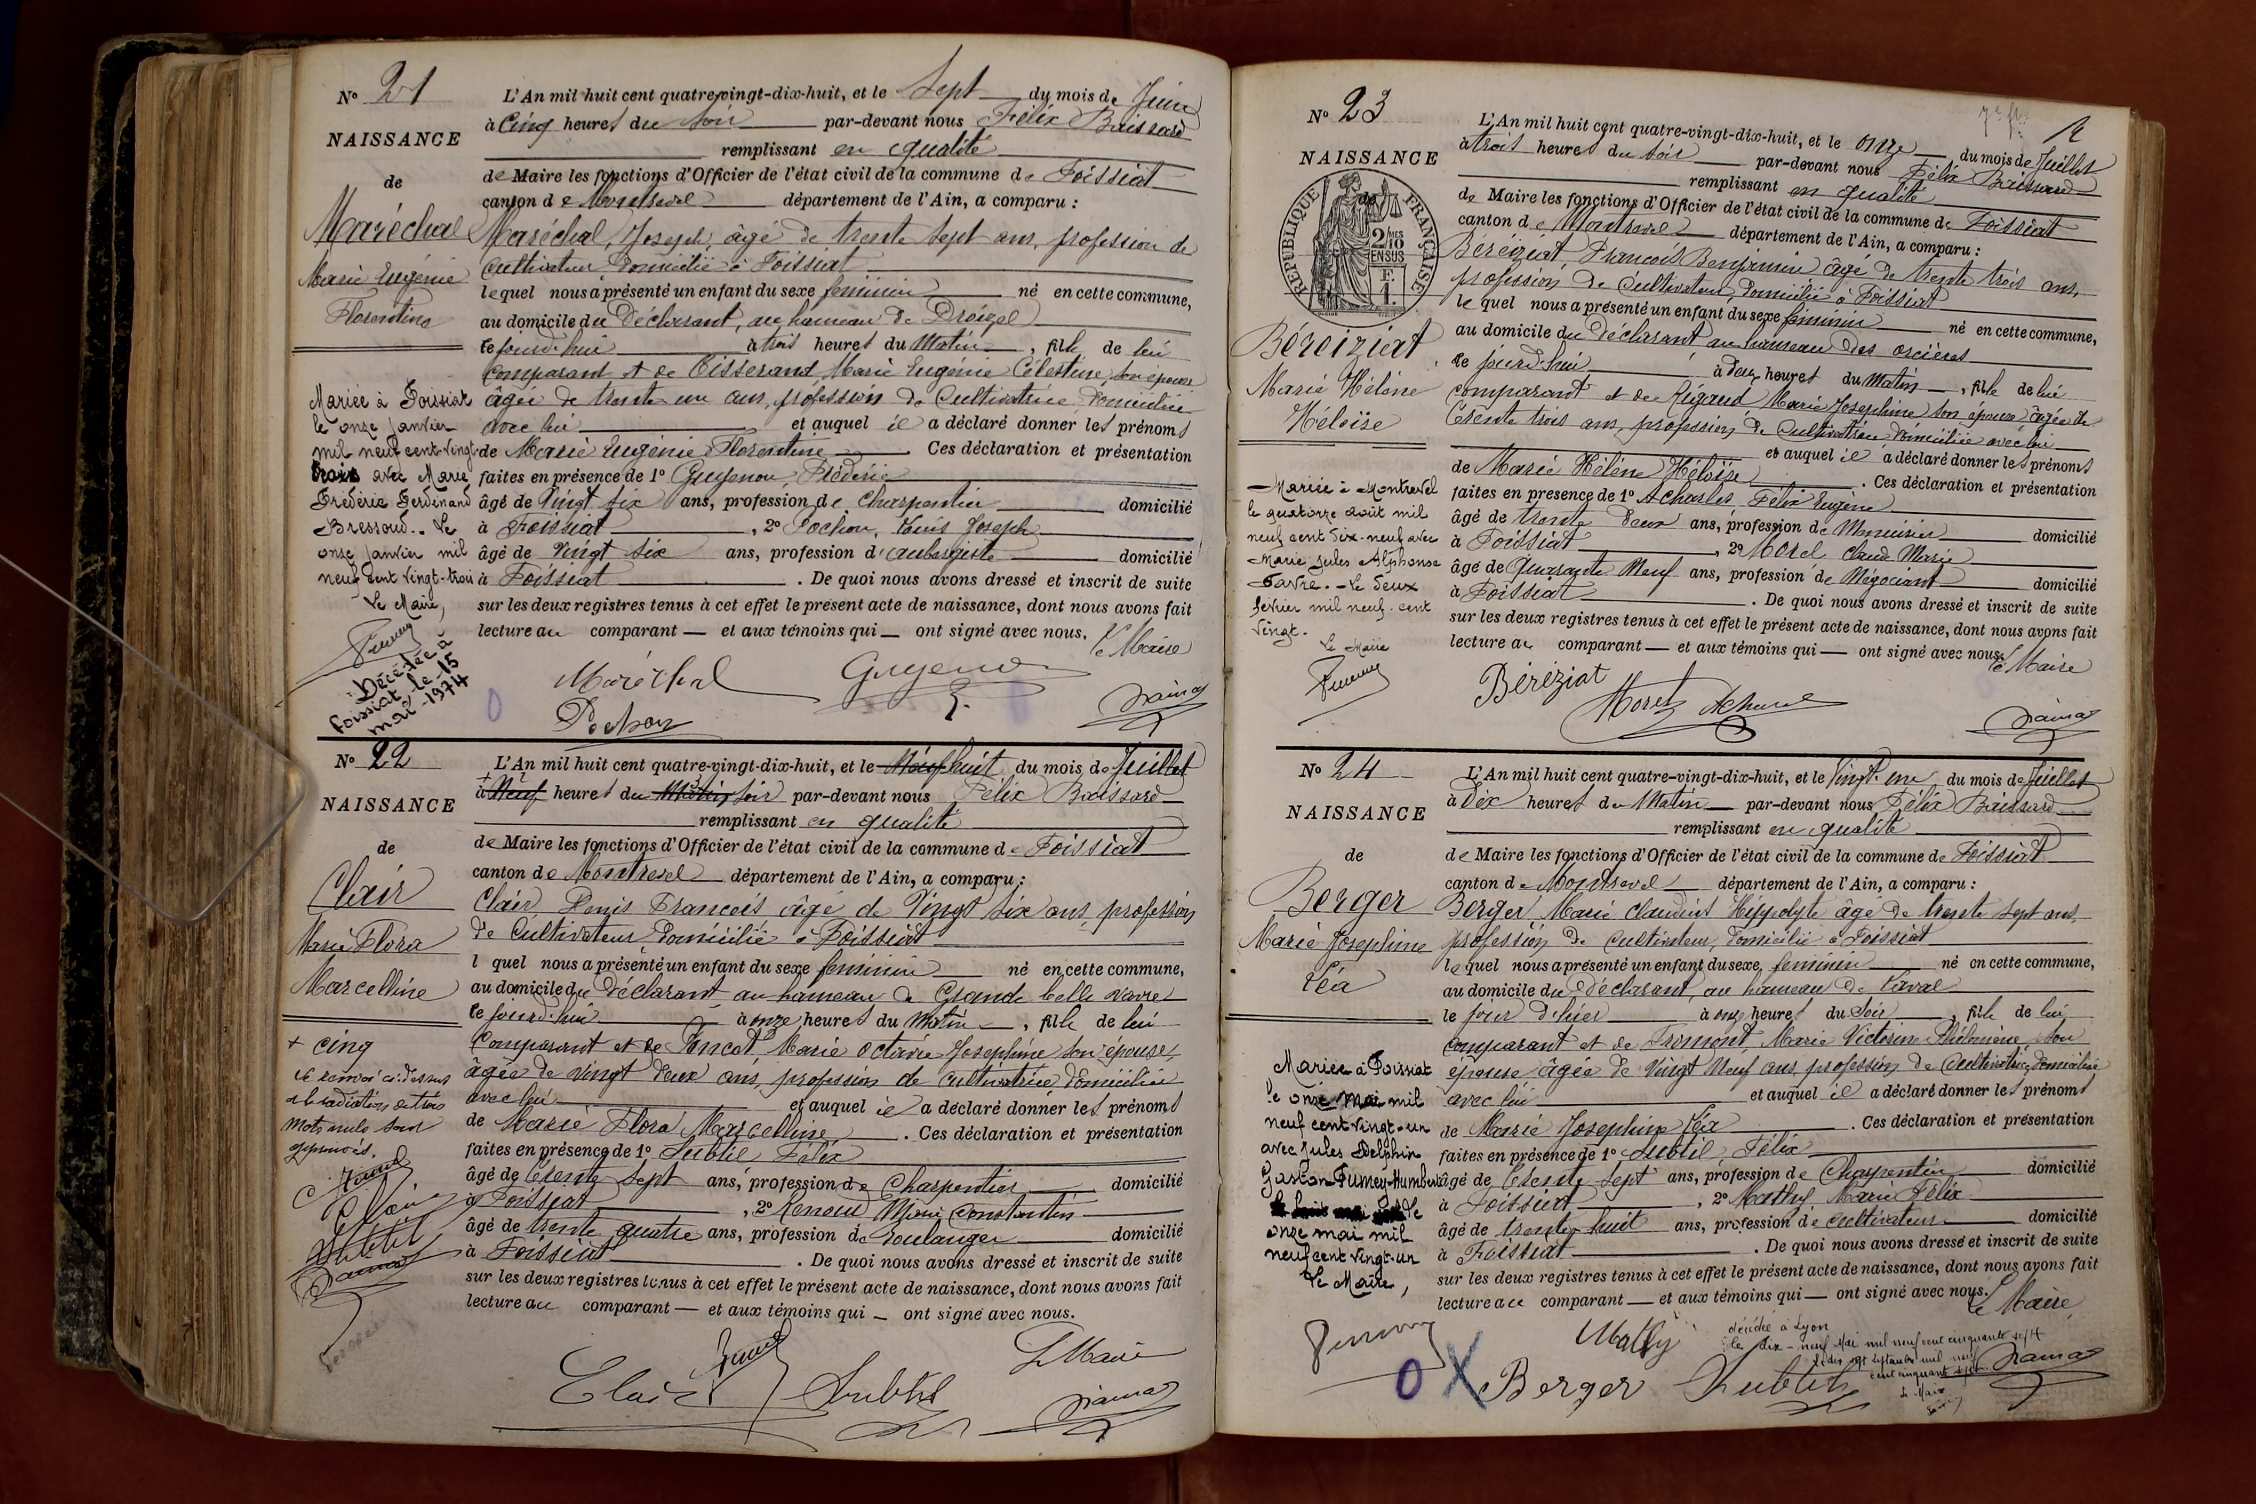 No 21
NAISSANCE
de
Maréchal
Marie Eugénie
Florentine
Mariée à Foissiat
le onze Janvier
mil neuf cent vingt
trois avec Marie
Frédéric Ferdinand
Bressoud.. Le
onze Janvier mil
neuf cent vingt-trois
Le Maire,
Décédée à
Foissiat le 15
mai 1974
L'An mil huit cent quatre-vingt-dix-huit, et le Sept du mois de Juin
à Cinq heures du Soir par-devant nous Félix
remplissant en qualité
de Maire les fonctions d'Officier de l'état civil de la commune de Foissiat
canton de Montrevel département de l'Ain, a comparu :
Maréchal, Joseph, âgé de trente sept ans, profession de
Cultivateur domicilié à Foissiat
lequel nous a présenté un enfant du sexe féminin né en cette commune,
au domicile du déclarant, au hameau de
le jourd'hui à trois heures du Matin, fille de lui
comparant et de Tisserand, Marie Eugénie Célestine, son épouse
âgée de trente un ans, profession de Cultivatrice, domiciliée
avec lui et auquel il a déclaré donner les prénoms
de Marie Eugénie Florentine Ces déclaration et présentation
faites en présence de 1° Guyenon, Frédéric
âgé de Vingt six ans, profession de Charpentier domicilié
à Foissiat, 2° Pochon, Louis Joseph
âgé de vingt six ans, profession d'aubergiste domicilié
à Foissiat. De quoi nous avons dressé et inscrit de suite
sur les deux registres tenus à cet effet le présent acte de naissance, dont nous avons fait
lecture au comparant — et aux témoins qui — ont signé avec nous.
Le Maire
Maréchal
Guyenon
Pochon
0
No 22
NAISSANCE
de
Clair
Marie Flora
Marcelline
+ cinq
le renvoi ci-dessus
et la radiation de trois
mots nuls sont
approuvés.
Clair
Subtil
L'An mil huit cent quatre-vingt-dix-huit, et le Neuf huit du mois de Juillet
+
à Neuf heures du Matin Soir par-devant nous Félix
remplissant en qualité
de Maire les fonctions d'Officier de l'état civil de la commune de Foissiat
canton de Montrevel département de l'Ain, a comparu :
Clair Denis François âgé de Vingt six ans, profession
de Cultivateur domicilié à Foissiat
l quel nous a présenté un enfant du sexe féminin né en cette commune,
au domicile du déclarant au hameau de Grande
le jourd'hui à onze heures du Matin, fille de lui
Comparant et de Poncet Marie Octavie Josephine son épouse,
âgée de vingt deux ans, profession de cultivatrice domiciliée
avec lui et auquel il a déclaré donner les prénoms
de Marie Flora Marcelline. Ces déclaration et présentation
faites en présence de 1° Subtil Félix
âgé de Trente Sept ans, profession de Charpentier domicilié
à Foissiat, 2° Renoud Marie Constantin
âgé de trente quatre ans, profession de Boulanger domicilié
à Foissiat. De quoi nous avons dressé et inscrit de suite
sur les deux registres tenus à cet effet le présent acte de naissance, dont nous avons fait
lecture au comparant — et aux témoins qui — ont signé avec nous.
Le Maire
Clair
Subtil
No 23
NAISSANCE
de
REPUBLIQUE FRANÇAISE
2/10 MES
EN SUS
1 F.
Béréziat
Marie Hélène
Héloïse
Mariée à Montrevel
le quatorze août mil
neuf cent dix-neuf avec
Marie Jules Alphonse
Favre. Le deux
février mil neuf cent
vingt.
Le Maire
L'An mil huit cent quatre-vingt-dix-huit, et le onze du mois de Juillet
à trois heures du Soir par-devant nous Félix
remplissant en qualité
de Maire les fonctions d'Officier de l'état civil de la commune de Foissiat
canton de Montrevel département de l'Ain, a comparu :
Béréziat, François Benjamin âgé de trente trois ans,
profession de Cultivateur, domicilié à Foissiat
le quel nous a présenté un enfant du sexe féminin né en cette commune,
au domicile du déclarant au hameau des
le jourd'hui à deux heures du Matin, fille de lui
comparant et de Rigaud Marie Josephine son épouse âgée de
trente trois ans, profession de Cultivatrice domiciliée avec lui
et auquel il a déclaré donner les prénoms
de Marie Hélène Héloïse. Ces déclaration et présentation
faites en présence de 1° Acharles, Félix Eugène
âgé de trente deux ans, profession de Menuisier domicilié
à Foissiat, 2° Morel Claude Marie
âgé de Quarante Neuf ans, profession de Négociant domicilié
à Foissiat. De quoi nous avons dressé et inscrit de suite
sur les deux registres tenus à cet effet le présent acte de naissance, dont nous avons fait
lecture au comparant — et aux témoins qui — ont signé avec nous.
Le Maire
Béréziat
Morel
No 24
NAISSANCE
de
Berger
Marie Josephine
Léa
Mariée à Foissiat
le onze mai mil
neuf cent vingt-un
avec Jules Delphin
Gaston Fumey-Humbert
le
onze mai mil
neuf cent vingt-un
Le Maire,
L'An mil huit cent quatre-vingt-dix-huit, et le Vingt-un du mois de Juillet
à Dix heures du Matin par-devant nous Félix
remplissant en qualité
de Maire les fonctions d'Officier de l'état civil de la commune de Foissiat
canton de Montrevel département de l'Ain, a comparu :
Berger Marie Claudius Hippolyte âgé de trente sept ans,
profession de cultivateur, domicilié à Foissiat
lequel nous a présenté un enfant du sexe féminin né en cette commune,
au domicile du déclarant, au hameau de Laval
le jour d'hier à onze heures du Soir, fille de lui
comparant et de Fromont, Marie Victorine Philomène, son
épouse âgée de Vingt Neuf ans, profession de Cultivatrice, domiciliée
avec lui et auquel il a déclaré donner les prénoms
de Marie Josephine Léa. Ces déclaration et présentation
faites en présence de 1° Subtil, Félix
âgé de Trente Sept ans, profession de Charpentier domicilié
à Foissiat, 2° Mathy, Marie Félix
âgé de trente huit ans, profession de cultivateur domicilié
à Foissiat. De quoi nous avons dressé et inscrit de suite
sur les deux registres tenus à cet effet le présent acte de naissance, dont nous avons fait
lecture au comparant — et aux témoins qui — ont signé avec nous.
Le Maire
Mathy
décédée à Lyon
le dix-neuf Mai mil neuf cent cinquante sept
Le dix sept Septembre mil neuf
cent cinquante sept
Le Maire
0 X Berger Subtil